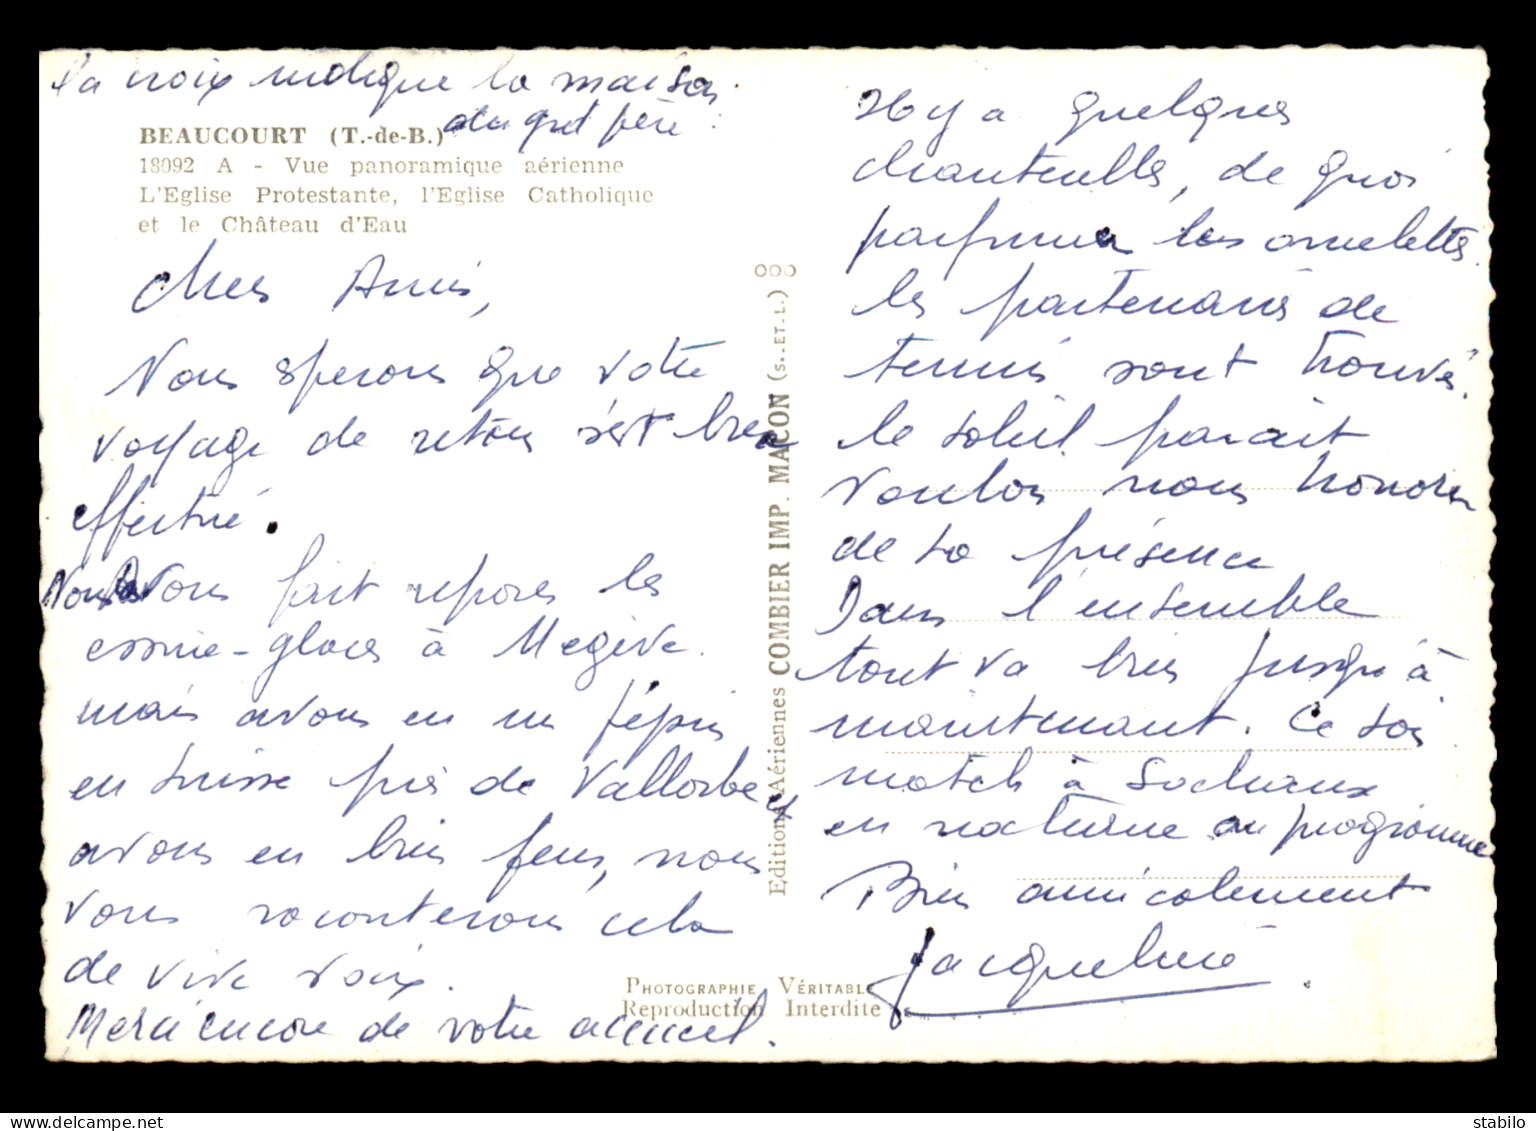 la croix indique la maison
du grd père.
BEAUCOURT (T.-de-B.)
18092 A - Vue panoramique aérienne
L'Eglise Protestante, l'Eglise Catholique
et le Château d'Eau
Chers Amis,
Nous esperons que votre
voyage de retour s'est bien
effectué.
Nous avons fait reposer les
essuie-glaces à Megève.
mais avons eu un pépin
en Suisse près de Vallorbe et
avons eu bien peur, nous
vous raconterons cela
de vive voix.
Merci encore de votre accueil.
Editions Aériennes COMBIER IMP. MACON (S.-ET-L.)
Il y a quelques
chanterelles, de quoi
parfumer les omelettes.
les partenaires de
tennis sont trouvés.
le soleil parait
vouloir nous honorer
de sa présence
Dans l'ensemble
tout va bien jusqu'à
maintenant. Ce soir
match à Sochaux
en nocturne au programme
Bien amicalement
Jacqueline
PHOTOGRAPHIE VÉRITABLE
Reproduction Interdite
stabilo